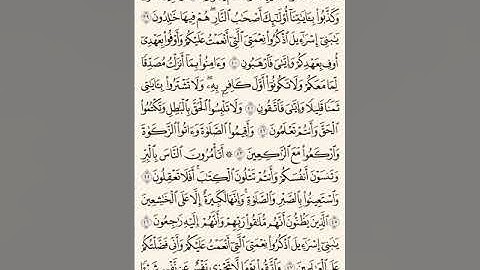 وَكَذَّبُوا۟ بِـَٔايَـٰتِنَآ أُو۟لَـٰٓئِكَ أَصْحَـٰبُ ٱلنَّارِ ۖ هُمْ فِيهَا خَـٰلِدُونَ ٣٩
يَـٰبَنِىٓ إِسْرَٰٓءِيلَ ٱذْكُرُوا۟ نِعْمَتِىَ ٱلَّتِىٓ أَنْعَمْتُ عَلَيْكُمْ وَأَوْفُوا۟ بِعَهْدِىٓ
أُوفِ بِعَهْدِكُمْ وَإِيَّـٰىَ فَٱرْهَبُونِ ٤٠ وَءَامِنُوا۟ بِمَآ أَنزَلْتُ مُصَدِّقًا
لِّمَا مَعَكُمْ وَلَا تَكُونُوٓا۟ أَوَّلَ كَافِرٍۭ بِهِۦ ۖ وَلَا تَشْتَرُوا۟ بِـَٔايَـٰتِى
ثَمَنًا قَلِيلًا وَإِيَّـٰىَ فَٱتَّقُونِ ٤١ وَلَا تَلْبِسُوا۟ ٱلْحَقَّ بِٱلْبَـٰطِلِ وَتَكْتُمُوا۟
ٱلْحَقَّ وَأَنتُمْ تَعْلَمُونَ ٤٢ وَأَقِيمُوا۟ ٱلصَّلَوٰةَ وَءَاتُوا۟ ٱلزَّكَوٰةَ
وَٱرْكَعُوا۟ مَعَ ٱلرَّٰكِعِينَ ٤٣ ۞ أَتَأْمُرُونَ ٱلنَّاسَ بِٱلْبِرِّ
وَتَنسَوْنَ أَنفُسَكُمْ وَأَنتُمْ تَتْلُونَ ٱلْكِتَـٰبَ ۚ أَفَلَا تَعْقِلُونَ ٤٤
وَٱسْتَعِينُوا۟ بِٱلصَّبْرِ وَٱلصَّلَوٰةِ ۚ وَإِنَّهَا لَكَبِيرَةٌ إِلَّا عَلَى ٱلْخَـٰشِعِينَ
٤٥ ٱلَّذِينَ يَظُنُّونَ أَنَّهُم مُّلَـٰقُوا۟ رَبِّهِمْ وَأَنَّهُمْ إِلَيْهِ رَٰجِعُونَ ٤٦
يَـٰبَنِىٓ إِسْرَٰٓءِيلَ ٱذْكُرُوا۟ نِعْمَتِىَ ٱلَّتِىٓ أَنْعَمْتُ عَلَيْكُمْ وَأَنِّى فَضَّلْتُكُمْ
عَلَى ٱلْعَـٰلَمِينَ ٤٧ وَٱتَّقُوا۟ يَوْمًا لَّا تَجْزِى نَفْسٌ عَن نَّفْسٍ شَيْـًٔا